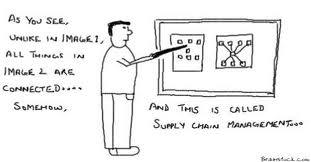 AS YOU SEE,
UNLIKE IN IMAGE 1,
ALL THINGS IN
IMAGE 2 ARE
CONNECTED....
SOMEHOW,
AND THIS IS CALLED
SUPPLY CHAIN MANAGEMENT....
Brainstuck.com